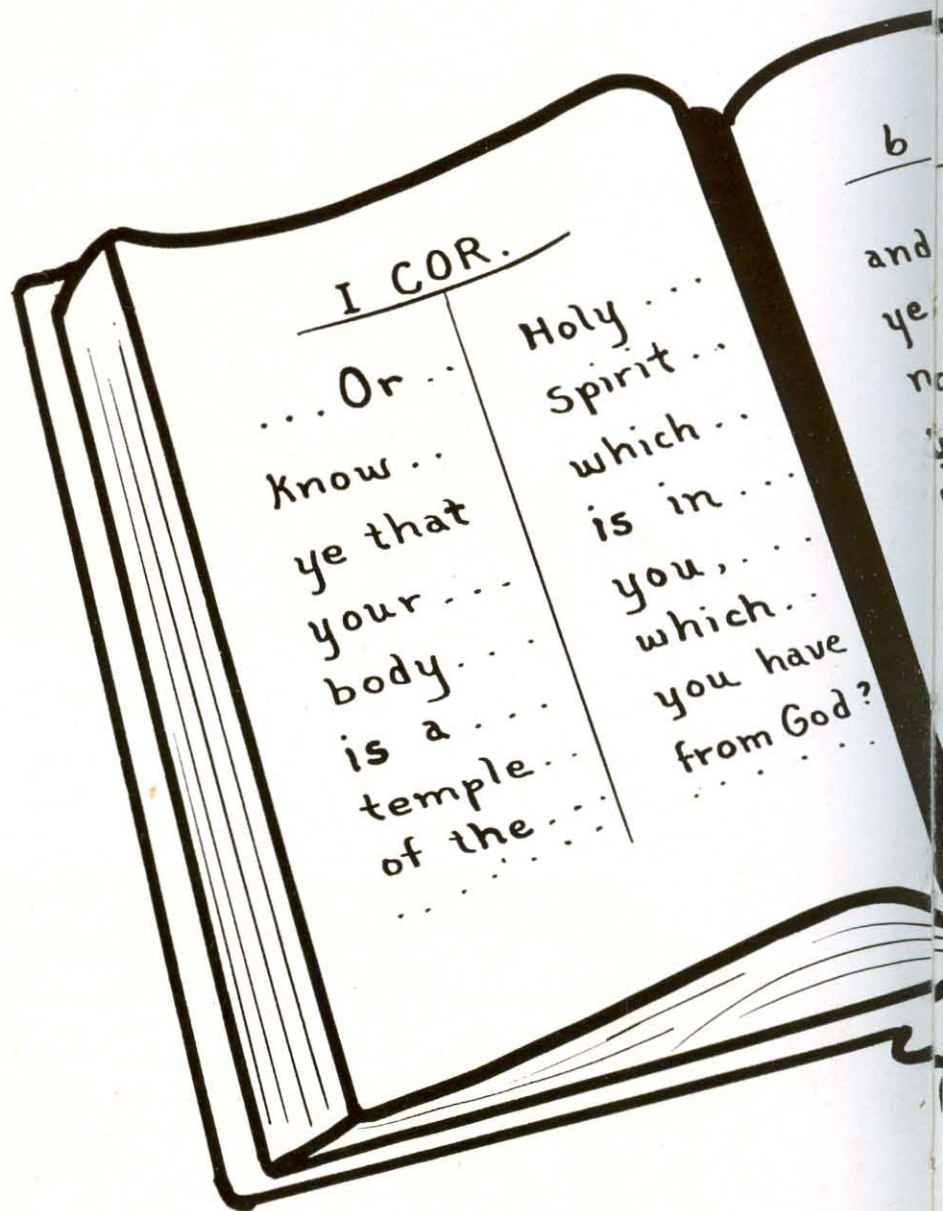 I COR.
... Or ..
Know ..
ye that
your ...
body ...
is a ...
temple ..
of the ...
Holy ...
Spirit ..
which ..
is in ...
you, ...
which ..
you have
from God?
b
and
ye